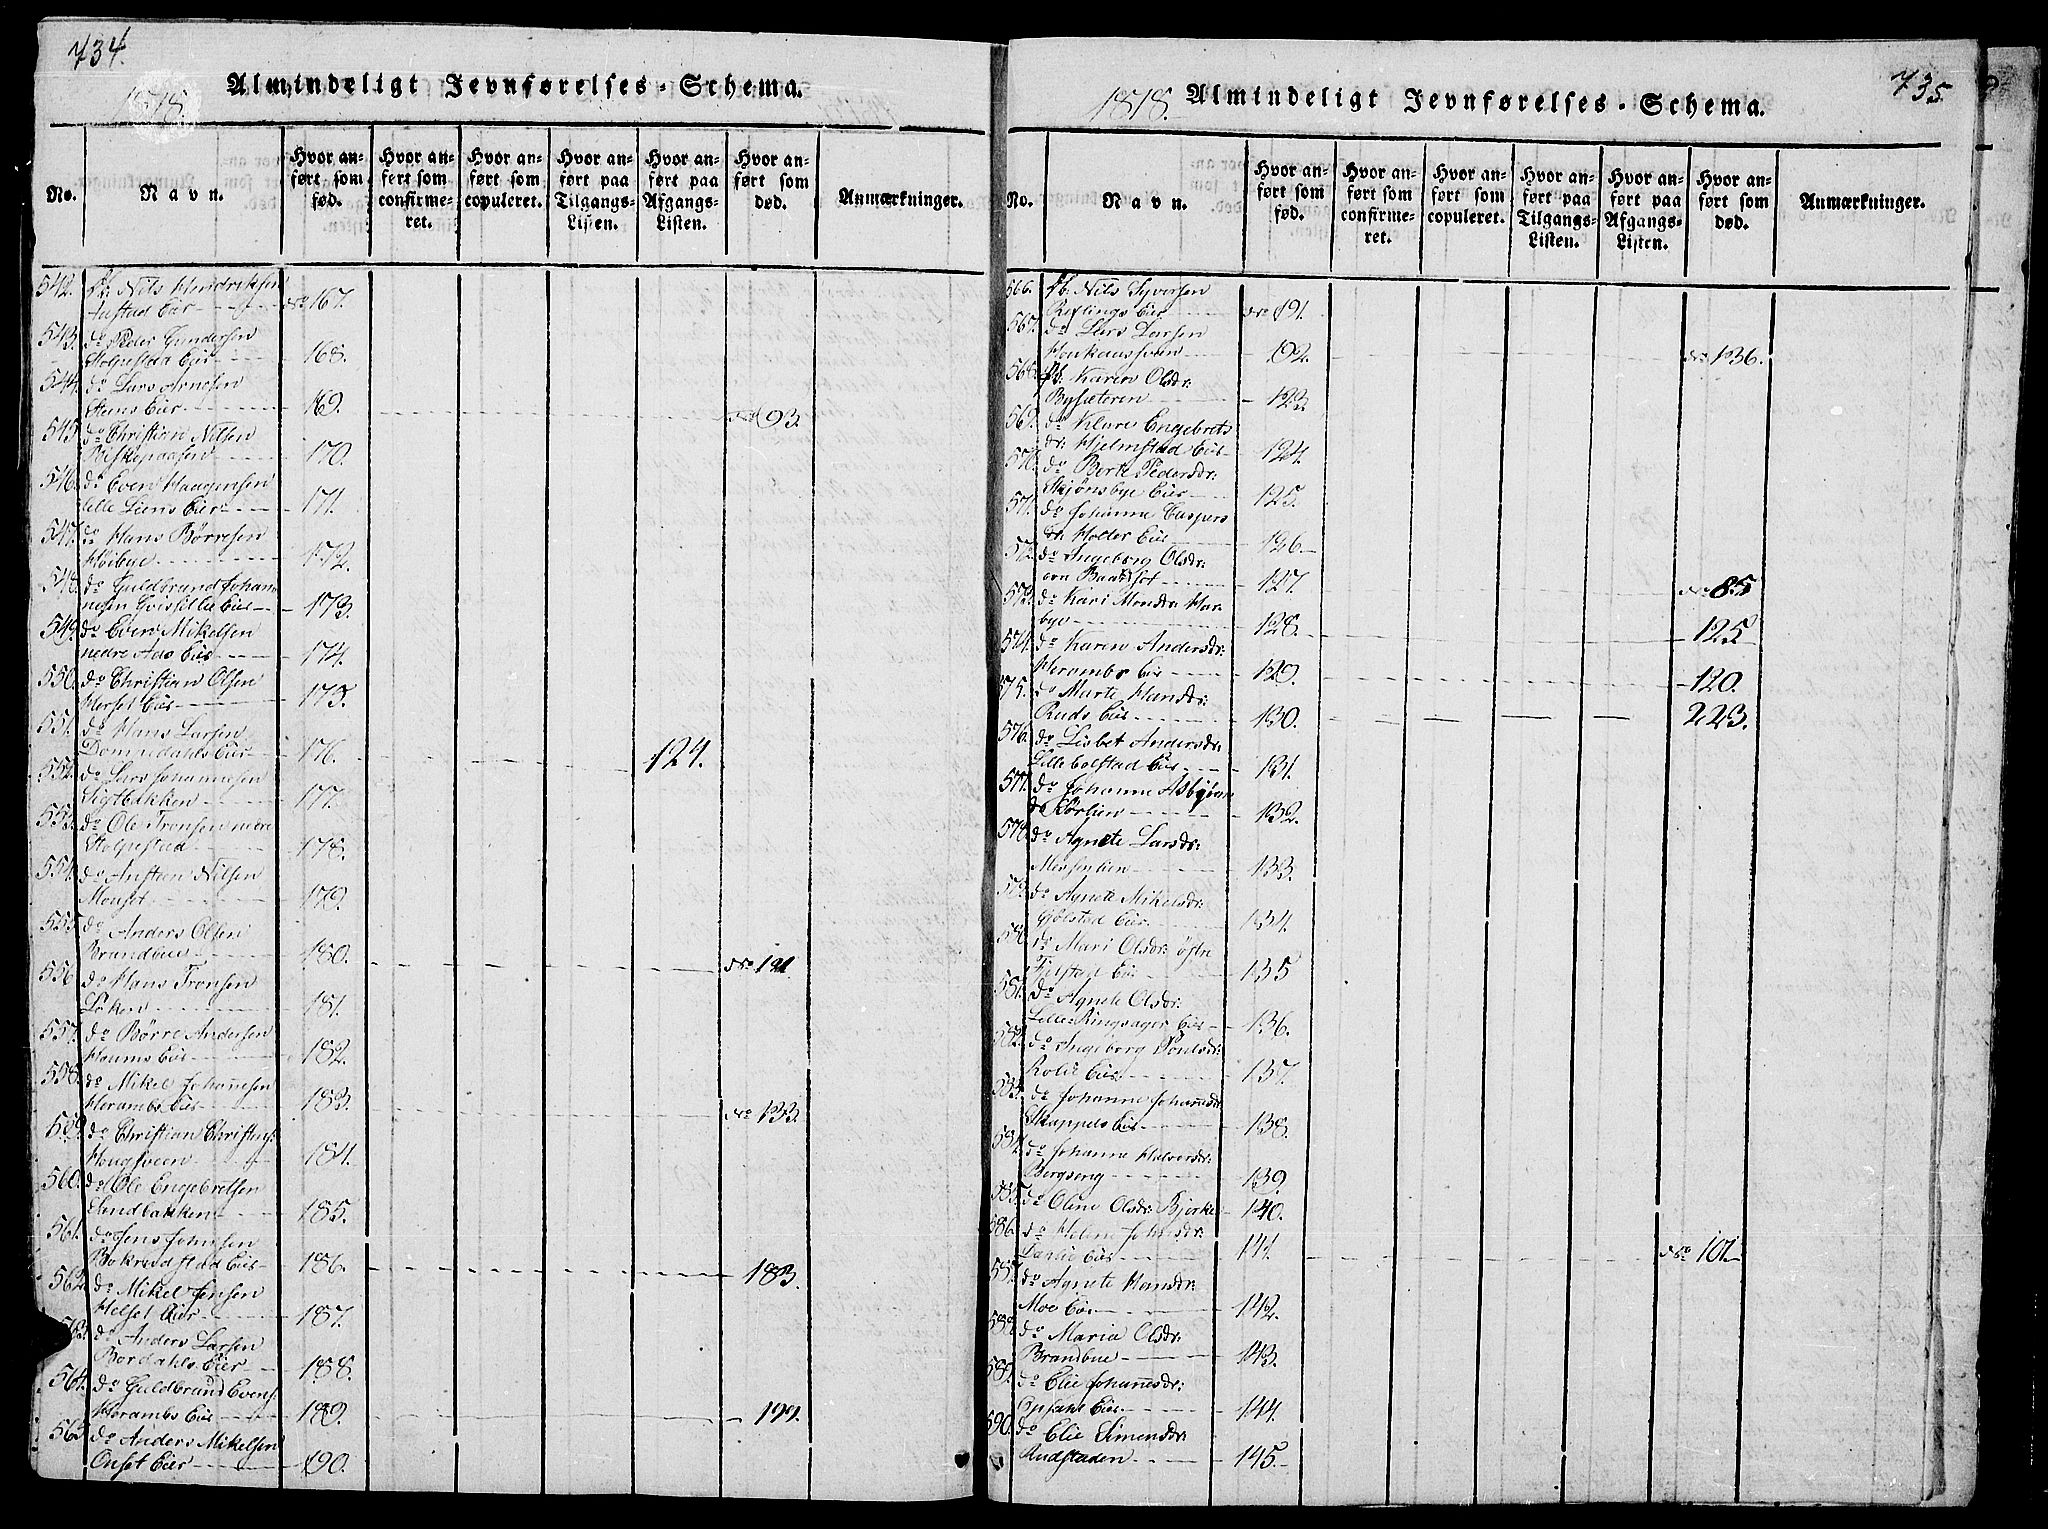 734.
1818.
Almindeligt Jevnførelses-Schema.
No.
Navn.
Hvor anført som fød.
Hvor anfert som confirmeret.
Hvor anført som copuleret.
Hvor anført paa Tilgangs-Listen.
Hvor anført paa Afgangs-Listen.
Hvor anført som død.
Anmærkninger.
542. Fb: Nils Hendriksen
Austad Eier No 167.
543. do Peder Gundersen
Stolpestad Eier 168.
544. do Lars Arnesen
Stens Eier 169. No 93.
545. do Christian Nilsen
Biskepaasen 170.
546. do Even Haagensen
Lille Liens Eier 171.
547. do Hans Børresen
Høibye 172.
548. do Guldbrand Johannesen
Eier 173.
549. do Even Mikelsen
nedre Aas Eier 174.
550. do Christian Olsen
Herset Eier 175.
551. do Hans Larsen
Dompedahls Eier 176. 124.
552. do Lars Johannesen
Sigtbakken 177.
553. do Ole Tronsen nedre
Stolpestad 178.
554. do Austian Nilsen
Monset 179.
555. do Anders Olsen
Brandbue 180. No 121
556. do Hans Tronsen
Løken 181.
557. do Børre Andersen
Haums Eier 182.
558. do Mikel Johannesen
Herambs Eier 183. No 133.
559. do Christian Christens:
Hougsveen 184.
560. do Ole Engebretsen
Sandbakken 185.
561. do Jens Johnsen
Bakredstad Eier 186. 183.
562. do Mikel Jensen
Helset Eier 187.
563. do Anders Larsen
Bordahls Eier 188.
564. do Guldbrand Evens:
Herambs Eier 189. 199.
565. do Anders Mikelsen
Onset Eier 190.
735.
1818.
Almindeligt Jevnførelses-Schema.
No.
Navn.
Hvor anført som fød.
Hvor anført som confirmeret.
Hvor anført som copuleret.
Hvor anført paa Tilgangs-Listen.
Hvor anført paa Afgangs-Listen.
Hvor anført som død.
Anmærkninger.
566. Fb. Nils Syversen
Reflings Eier No 191.
567. do Lars Larsen
192. No 136.
568. Pb: Karen Olsdr:
Bysæteren 123.
569. do Klare Engebrets
dr: Hjelmstad Eier 124.
570. do Berte Pedersdr:
Skjønsbye Eier 125.
571. do Johanne Caspers
dr. Holter Eier 126.
572. do Ingeborg Olsdr:
127. No 85
573. do Kari Monsdr: Har
bye 128. 125
574. do Karen Andersdr:
Herambs Eier 129. 120.
575. do Marte Hansdr:
Ruds Eier 130. 223.
576. do Lisbet Andersdr:
Lille Colstad Eier 131.
577. do Johanne Asbjørns
dr Kørlien 132.
578. do Agnete Larsdr:
Messenlien 133.
579. do Agnete Mikelsdr:
Gjølstad Eier 134.
580. do Mari Olsdr: østre
Fjelstad Eier 135
581. do Agnete Olsdr:
Lille Ringsager Eier 136.
582. do Ingeborg Poulsdr:
Eier 137.
583. do Johanne Johannesdr
Skappels Eier 138.
584. do Johanne Halvorsdr:
Bergseng 139.
585. do Oline Olsdr: Bjerke 140.
586. do Helene Johnsdr:
Eier 141. No 101.
587. do Agnete Hansdr:
Moe Eier 142.
588. do Maria Olsdr:
Brandbue 143.
589. do Elie Johannesdr:
Opsahl Eier 144.
590. do Elie Simensdr:
Rudstaden 145.